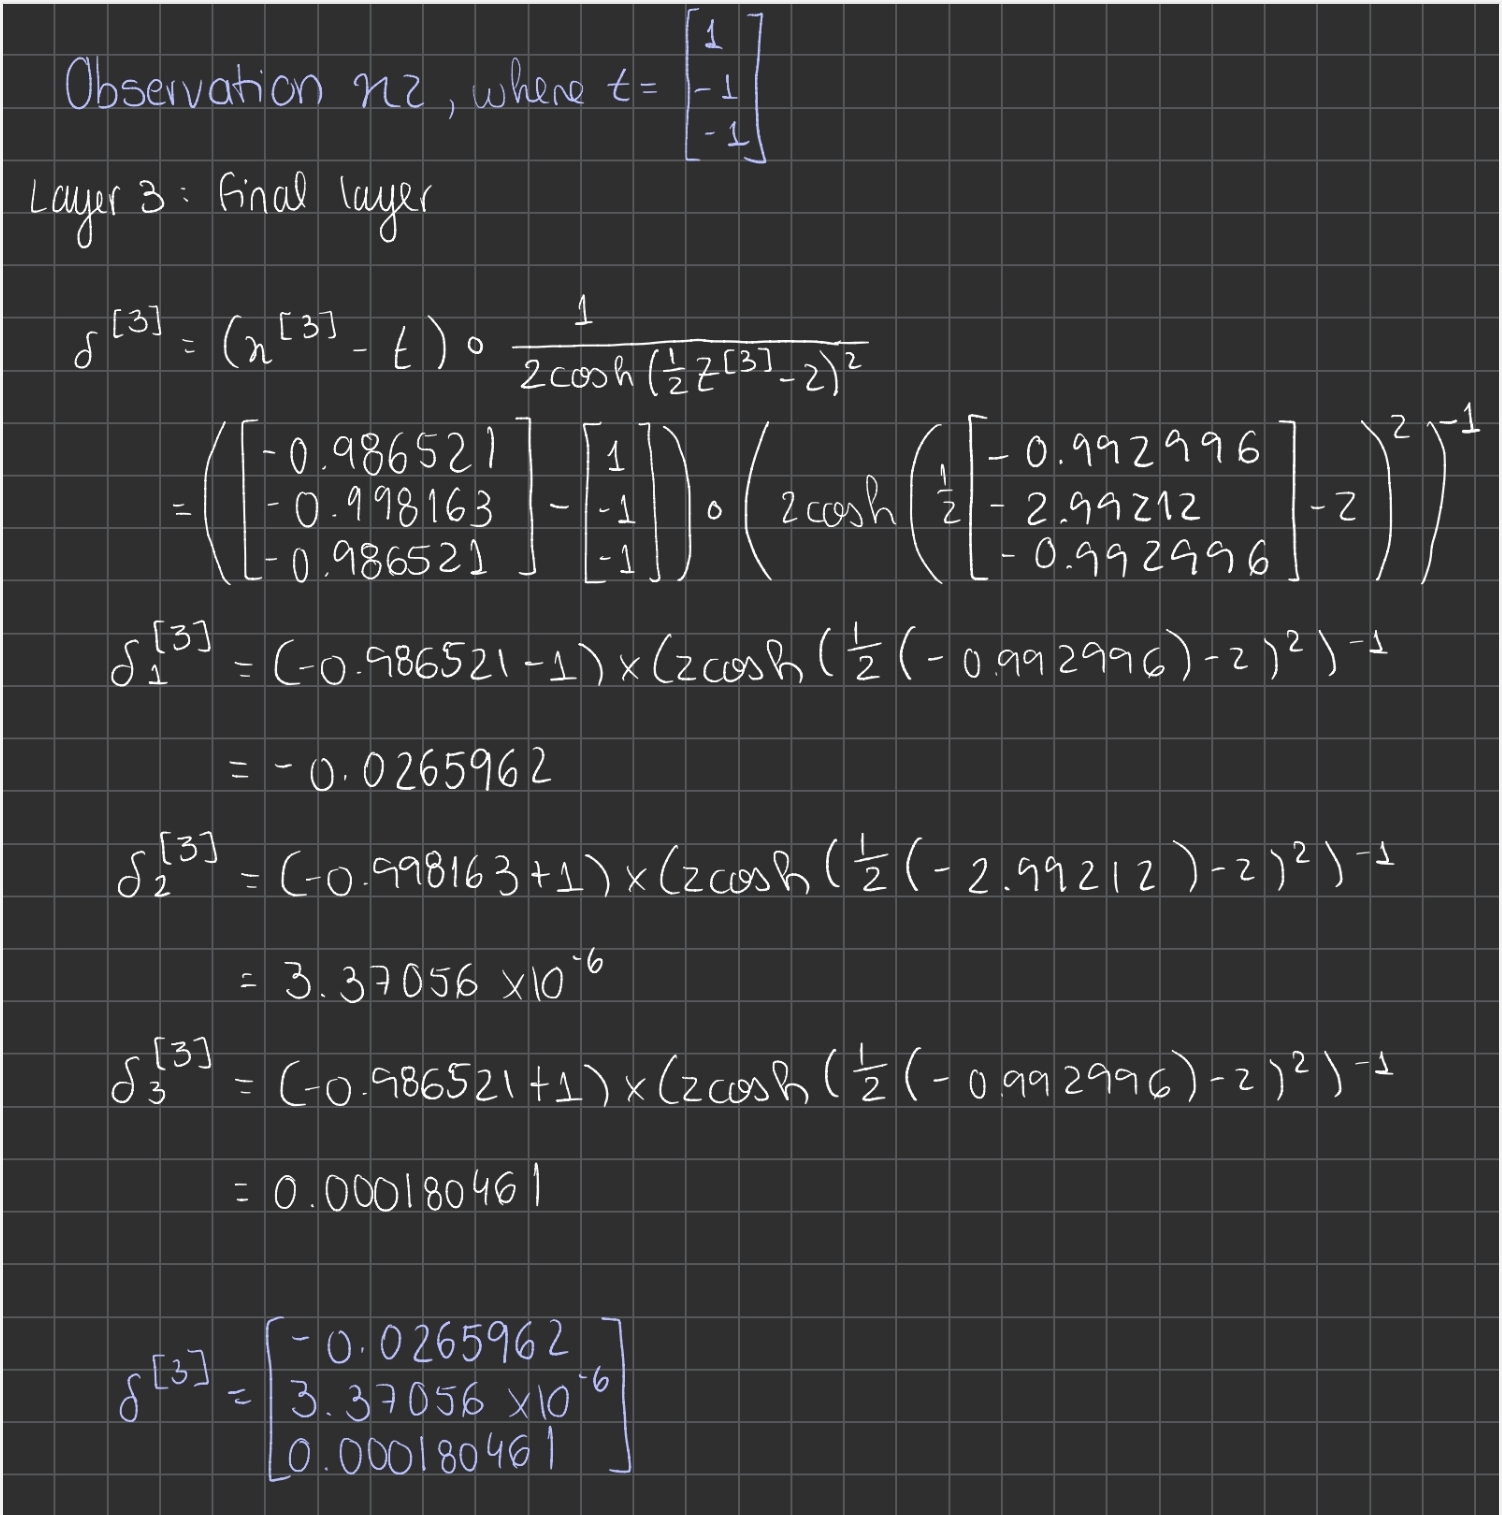 Observation x2, where t = [1 -1 -1]
Layer 3: final layer
δ^[3] = (x^[3] - t) ∘ 1 / 2cosh(½z^[3] - 2)²
= ([-0.986521 -0.998163 -0.986521] - [1 -1 -1]) ∘ (2cosh(½[-0.992996 -2.99212 -0.992996] - 2)²)⁻¹
δ₁^[3] = (-0.986521-1) × (2cosh(½(-0.992996)-2)²)⁻¹
= -0.0265962
δ₂^[3] = (-0.998163+1) × (2cosh(½(-2.99212)-2)²)⁻¹
= 3.37056 ×10⁻⁶
δ₃^[3] = (-0.986521+1) × (2cosh(½(-0.992996)-2)²)⁻¹
= 0.000180461
δ^[3] = [-0.0265962 3.37056 ×10⁻⁶ 0.000180461]